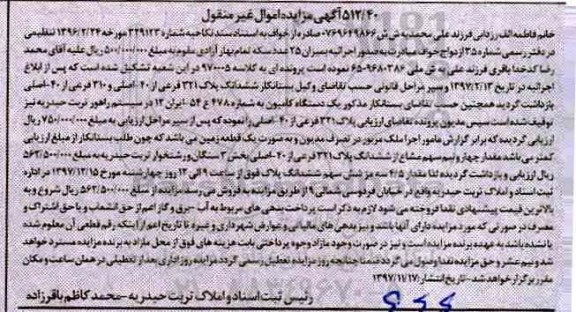 ۵۱۲/۴۰ آگهی مزایده اموال غیر منقول
خانم فاطمه الف رزدانی فرزند علی محمد به ش ش ۰۷۶۹۶۴۹۸۶۶ صادره از خواف به استناد سند نکاحیه شماره ۳۴۹۱۲۳ مورخه ۱۳۹۶/۲/۲۴ تنظیمی
در دفتر رسمی شماره ۳۵ ازدواج خواف مبادرت به صدور اجرائیه به میزان ۲۵ عدد سکه تمام بهار آزادی مقوم به مبلغ ۵۰۰/۰۰۰/۰۰۰ ریال علیه آقای محمد
رضا کدخدا باقری فرزند علی به ش ملی ۹۶۸۰۳۸۶-۶۵ نموده است پرونده ای به کلاسه ۹۷۰۰۰۵ در این شعبه تشکیل شده است که پس از ابلاغ
اجرائیه در تاریخ ۱۳۹۷/۲/۱۳ و سیر مراحل قانونی حسب تقاضای وکیل بستانکار ششدانگ پلاک ۳۲۱ فرعی از ۴۰-اصلی و ۳۱۰ فرعی از ۴۰-اصلی
بازداشت گردید همچنین حسب تقاضای بستانکار مذکور یک دستگاه کامیون به شماره ۴۷۸ ع ۵۴-ایران ۱۲ در سیستم راهور تربت حیدریه نیز
توقیف شده است سپس مدیون پرونده تقاضای ارزیابی پلاک ۳۲۱ فرعی از ۴۰-اصلی را نموده که پس از سیر مراحل ارزیابی به مبلغ ۷۵۰/۰۰۰/۰۰۰ ریال
ارزیابی گردیده که برابر گزارش مامور اجرا ملک مزبور در تصرف مدیون و به صورت یک قطعه زمین می باشد که چون طلب بستانکار از مبلغ ارزیابی
کمتر می باشد مقدار چهار و نیم سهم مشاع از ششدانگ پلاک ۳۲۱ فرعی از ۴۰-اصلی بخش ۳ سنگان و رشتخوار تربت حیدریه به مبلغ ۵۶۲/۵۰۰/۰۰۰
ریال ارزیابی و بازداشت گردیده لذا مقدار ۴/۵ سهم مشاع شش ششدانگ پلاک فوق از ساعت ۹ الی ۱۲ روز چهارشنبه مورخ ۱۳۹۷/۱۲/۱۵ در اداره
ثبت اسناد و املاک تربت حیدریه واقع در خیابان فردوسی شمالی ۹ از طریق مزایده به فروش می رسد مزایده از مبلغ ۵۶۲/۵۰۰/۰۰۰ ریال شروع و به
بالاترین قیمت پیشنهادی نقدا فروخته می شود لازم به ذکر است پرداخت بدهی های مربوط به آب-برق و گاز اعم از حق انشعاب و یا حق اشتراک و
مصرف در صورتی که مورد مزایده دارای آنها باشد و نیز بدهی های مالیاتی و عوارض شهرداری و غیره تا تاریخ اعم از اینکه رقم قطعی آن معلوم شده
یا نشده باشد به عهده برنده مزایده است و نیز در صورت وجود مازاد وجوه پرداختی بابت هزینه های فوق از محل مازاد به برنده مزایده مسترد خواهد
شد و نیم عشر و حق مزایده نقدا وصول می گردد ضمنا چنانچه روز مزایده تعطیل رسمی گردد مزایده روز اداری بعد از تعطیلی در همان ساعت و مکان
مقرر برگزار خواهد شد-تاریخ انتشار: ۱۳۹۷/۱۱/۱۷
رئیس ثبت اسناد و املاک تربت حیدریه-محمد کاظم باقرزاده